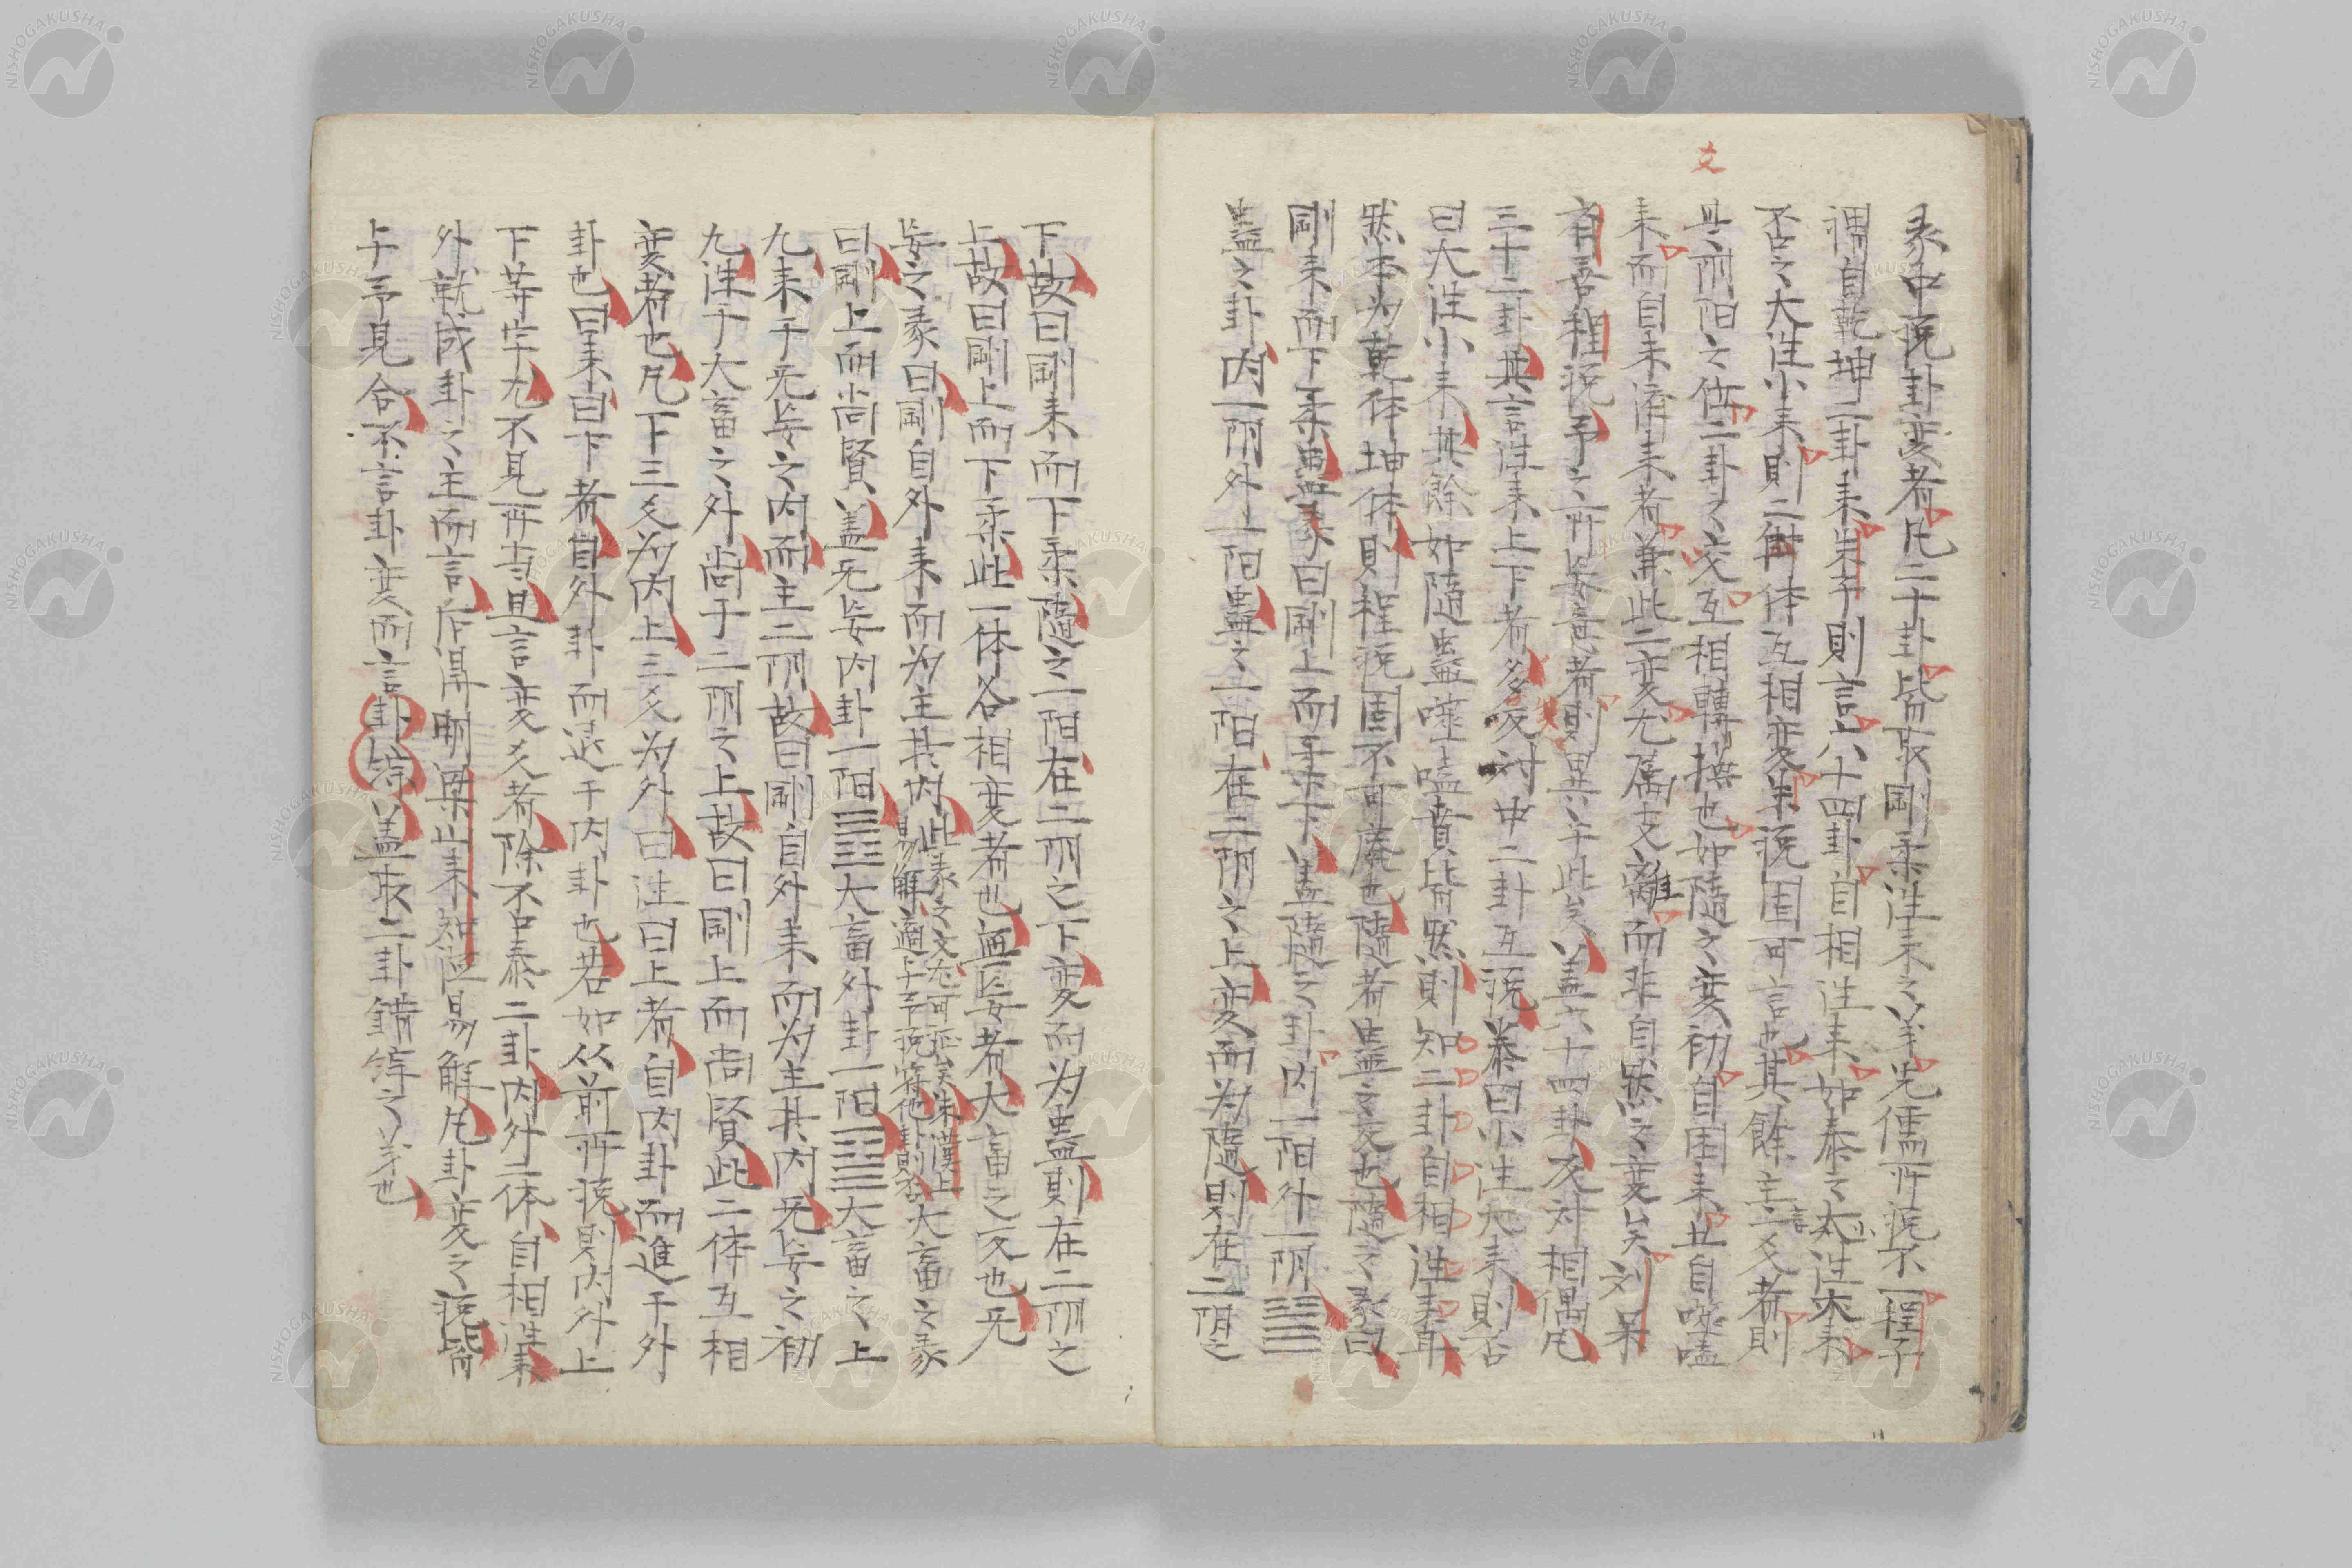 彖中說卦変者凡二十卦皆取剛柔往来之義先儒所說不一程子
謂自乾坤二卦来朱子則言六十四卦自相往来如泰之小往大来
否之大往小来則二体互相変朱說固可言也其餘主言二爻者則
其陰陽之位二卦之交互相轉換也如隨之変初自困来
来而自未済来者兼此二変尤属支離而非自然之変矣
有吾程說予之所安意者則異于此矣蓋六十四卦反対相偶凡
三十二卦其言往来上下者多反対中二卦互說泰曰小往大来則否
曰大往小来其餘如隨蠱噬嗑賁皆然則知二卦自相往来耳
然本为乾体坤体則程說固不可廃也隨者蠱之変也隨之彖曰
剛来而下柔蠱彖曰剛上而柔下蓋隨之卦内一陽外一陰䷐
蠱之卦内一陰外一陽蠱之一陽在二陰之上変而为隨則在二陰之
下故曰剛来而下柔隨之一陽在二陰之下変而为蠱則在二陰之
上故曰剛上而下柔此一体各相変者也無妄者大畜之変也无
妄之彖曰剛自外来而为主其内此彖之文尤可証矣朱漢上易解適与予說符他卦則否大畜之彖
曰剛上而尚賢蓋无妄内卦一陽䷘大畜外卦一陽䷙大畜之上
九来于无妄之内而主二陰故曰剛自外来而为主其内无妄之初
九往于大畜之外尚于二陰之上故曰剛上而尚賢此二体互相
変者也凡下三爻为内上三爻为外曰往曰上者自内卦而進于外
卦也曰来曰下者自外卦而退于内卦也若如从前所說則内外上
下等字尤不見所当且言変爻者除否泰二卦内外二体自相往来
外就成卦之主而言斥得明梁山来知徳易解凡卦変之說皆
与予見合不言卦変而言卦綜蓋取二卦錯綜之義也